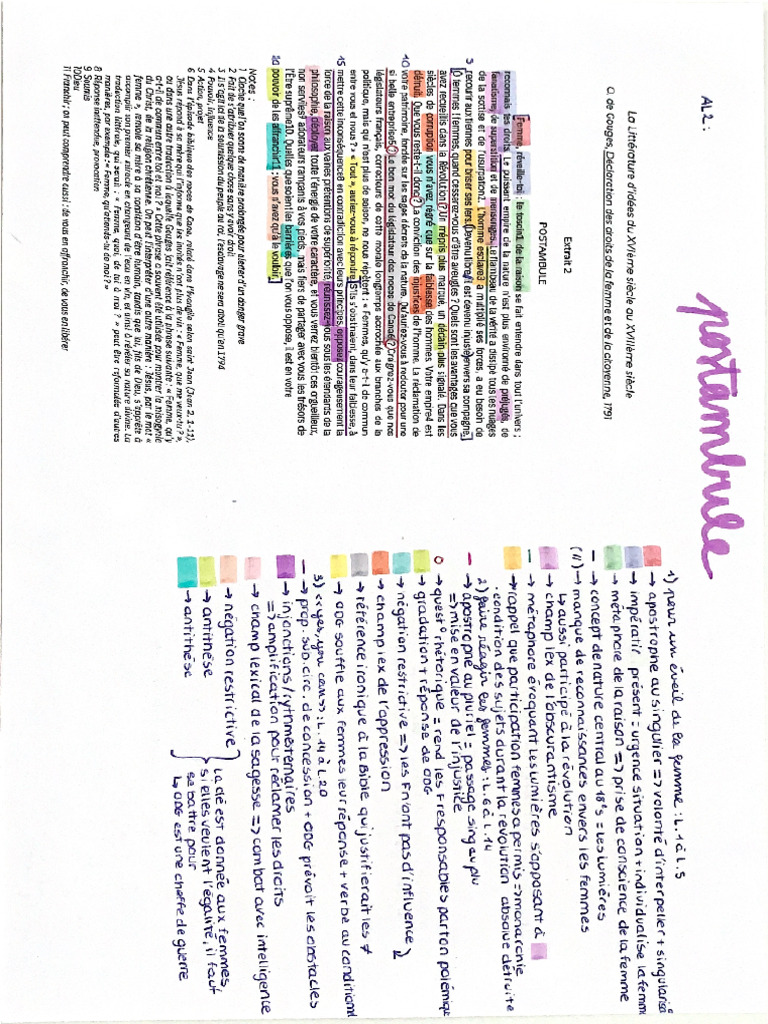 postambule
AL2 :
La Littérature d'idées du XVIième siècle au XVIIIème siècle
O. de Gouges, Déclaration des droits de la femme et de la citoyenne, 1791
Extrait 2
POSTAMBULE
Femme, réveille-toi ; le tocsin1 de la raison se fait entendre dans tout l'univers ;
reconnais tes droits. Le puissant empire de la nature n'est plus environné de préjugés, de
fanatisme, de superstition et de mensonges. Le flambeau de la vérité a dissipé tous les nuages
de la sottise et de l'usurpation2. L'homme esclave3 a multiplié ses forces, a eu besoin de
5 recourir aux tiennes pour briser ses fers. Devenu libre, il est devenu injuste envers sa compagne.
Ô femmes ! Femmes, quand cesserez-vous d'être aveugles ? Quels sont les avantages que vous
avez recueillis dans la Révolution ? Un mépris plus marqué, un dédain plus signalé. Dans les
siècles de corruption vous n'avez régné que sur la faiblesse des hommes. Votre empire4 est
détruit. Que vous reste-t-il donc ? La conviction des injustices de l'homme. La réclamation de
10 votre patrimoine, fondée sur les sages décrets de la nature. Qu'auriez-vous à redouter pour une
si belle entreprise5 ? Le bon mot du législateur des noces de Cana6 ? Craignez-vous que nos
législateurs français, correcteurs de cette morale longtemps accrochée aux branches de la
politique, mais qui n'est plus de saison, ne nous répètent : « Femmes, qu'y a-t-il de commun
entre vous et nous ? » « Tout », auriez-vous à répondre. S'ils s'obstinaient, dans leur faiblesse, à
15 mettre cette inconséquence en contradiction avec leurs principes, opposez courageusement la
force de la raison aux vaines prétentions de supériorité ; réunissez-vous sous les étendards de la
philosophie, déployez toute l'énergie de votre caractère, et vous verrez bientôt ces orgueilleux,
non serviles9 adorateurs rampants à vos pieds, mais fiers de partager avec vous les trésors de
l'Être suprême10. Quelles que soient les barrières que l'on vous oppose, il est en votre
20 pouvoir de les affranchir11 ; vous n'avez qu'à le vouloir.
Notes :
1 Cloche que l'on sonne de manière prolongée pour alerter d'un danger grave
2 Fait de s'attribuer quelque chose sans y avoir droit
3 Il s'agit de la soumission du peuple au roi, l'esclavage ne sera aboli qu'en 1794
4 Pouvoir, influence
5 Action, projet
6 Dans l'épisode biblique des noces de Cana, relaté dans l'évangile selon saint Jean (Jean 2, 1-11),
Jésus répond à sa mère qui l'informe que les invités n'ont plus de vin : « Femme, que me veux-tu ? »,
ou dans une autre traduction à laquelle Gouges fait référence à la phrase suivante : « Femme, qu'y
a-t-il de commun entre toi et moi ? » Cette phrase a souvent été utilisée pour montrer la misogynie
du Christ, de la religion chrétienne. On peut l'interpréter d'une autre manière : Jésus, par le mot «
femme », renvoie sa mère à sa condition d'être humain, tandis que lui, fils de Dieu, s'apprête à
accomplir son premier miracle en changeant de l'eau en vin, et ainsi à révéler sa nature divine. La
traduction littérale, qui serait : « Femme, quoi, de toi à moi ? » peut être reformulée d'autres
manières, par exemple : « Femme, qu'attends-tu de moi ? »
8 Réponse inattendue, provocation
9 Soumis
10Dieu
11 Franchir ; on peut comprendre aussi : de vous en affranchir, de vous en libérer
1) pour un éveil de la femme : L.1 à L.5
→ apostrophe au singulier => volonté d'interpeller + singularise
→ impératif présent = urgence situation + individualise la femme
→ métaphore de la raison => prise de conscience de la femme
→ concept de nature central au 18°s = les Lumières
(//) → manque de reconnaissances envers les femmes
↳ aussi participé à la révolution
→ champ lex de l'obscurantisme
→ métaphore évoquant les lumières s'opposant à
→ rappel que participation femmes a permis => monarchie
. condition des sujets durant la révolution absolue détruite
2) faire réagir les femmes : L.6 à L.14
→ apostrophe au pluriel = passage sing au plu
=> mise en valeur de l'injustice
→ quest° rhétorique = rend les + responsables par ton polémique
→ gradation + réponse de ODG
→ négation restrictive => les F n'ont pas d'influence
→ champ lex de l'oppression
→ référence ironique à la Bible qui justifierait les ≠
→ ODG souffle aux femmes leur réponse + verbe au conditionnel
3) << yes, you can >> : L.14 à L.20
→ prop. sub. circ. de concession + ODG prévoit les obstacles
→ injonctions / rythme ternaires
=> amplification pour réclamer les droits
→ champ lexical de la sagesse => combat avec intelligence
→ négation restrictive
→ antithèse
→ antithèse
La clé est donnée aux femmes
si elles veulent l'égalité, il faut
se battre pour
↳ ODG est une cheffe de guerre